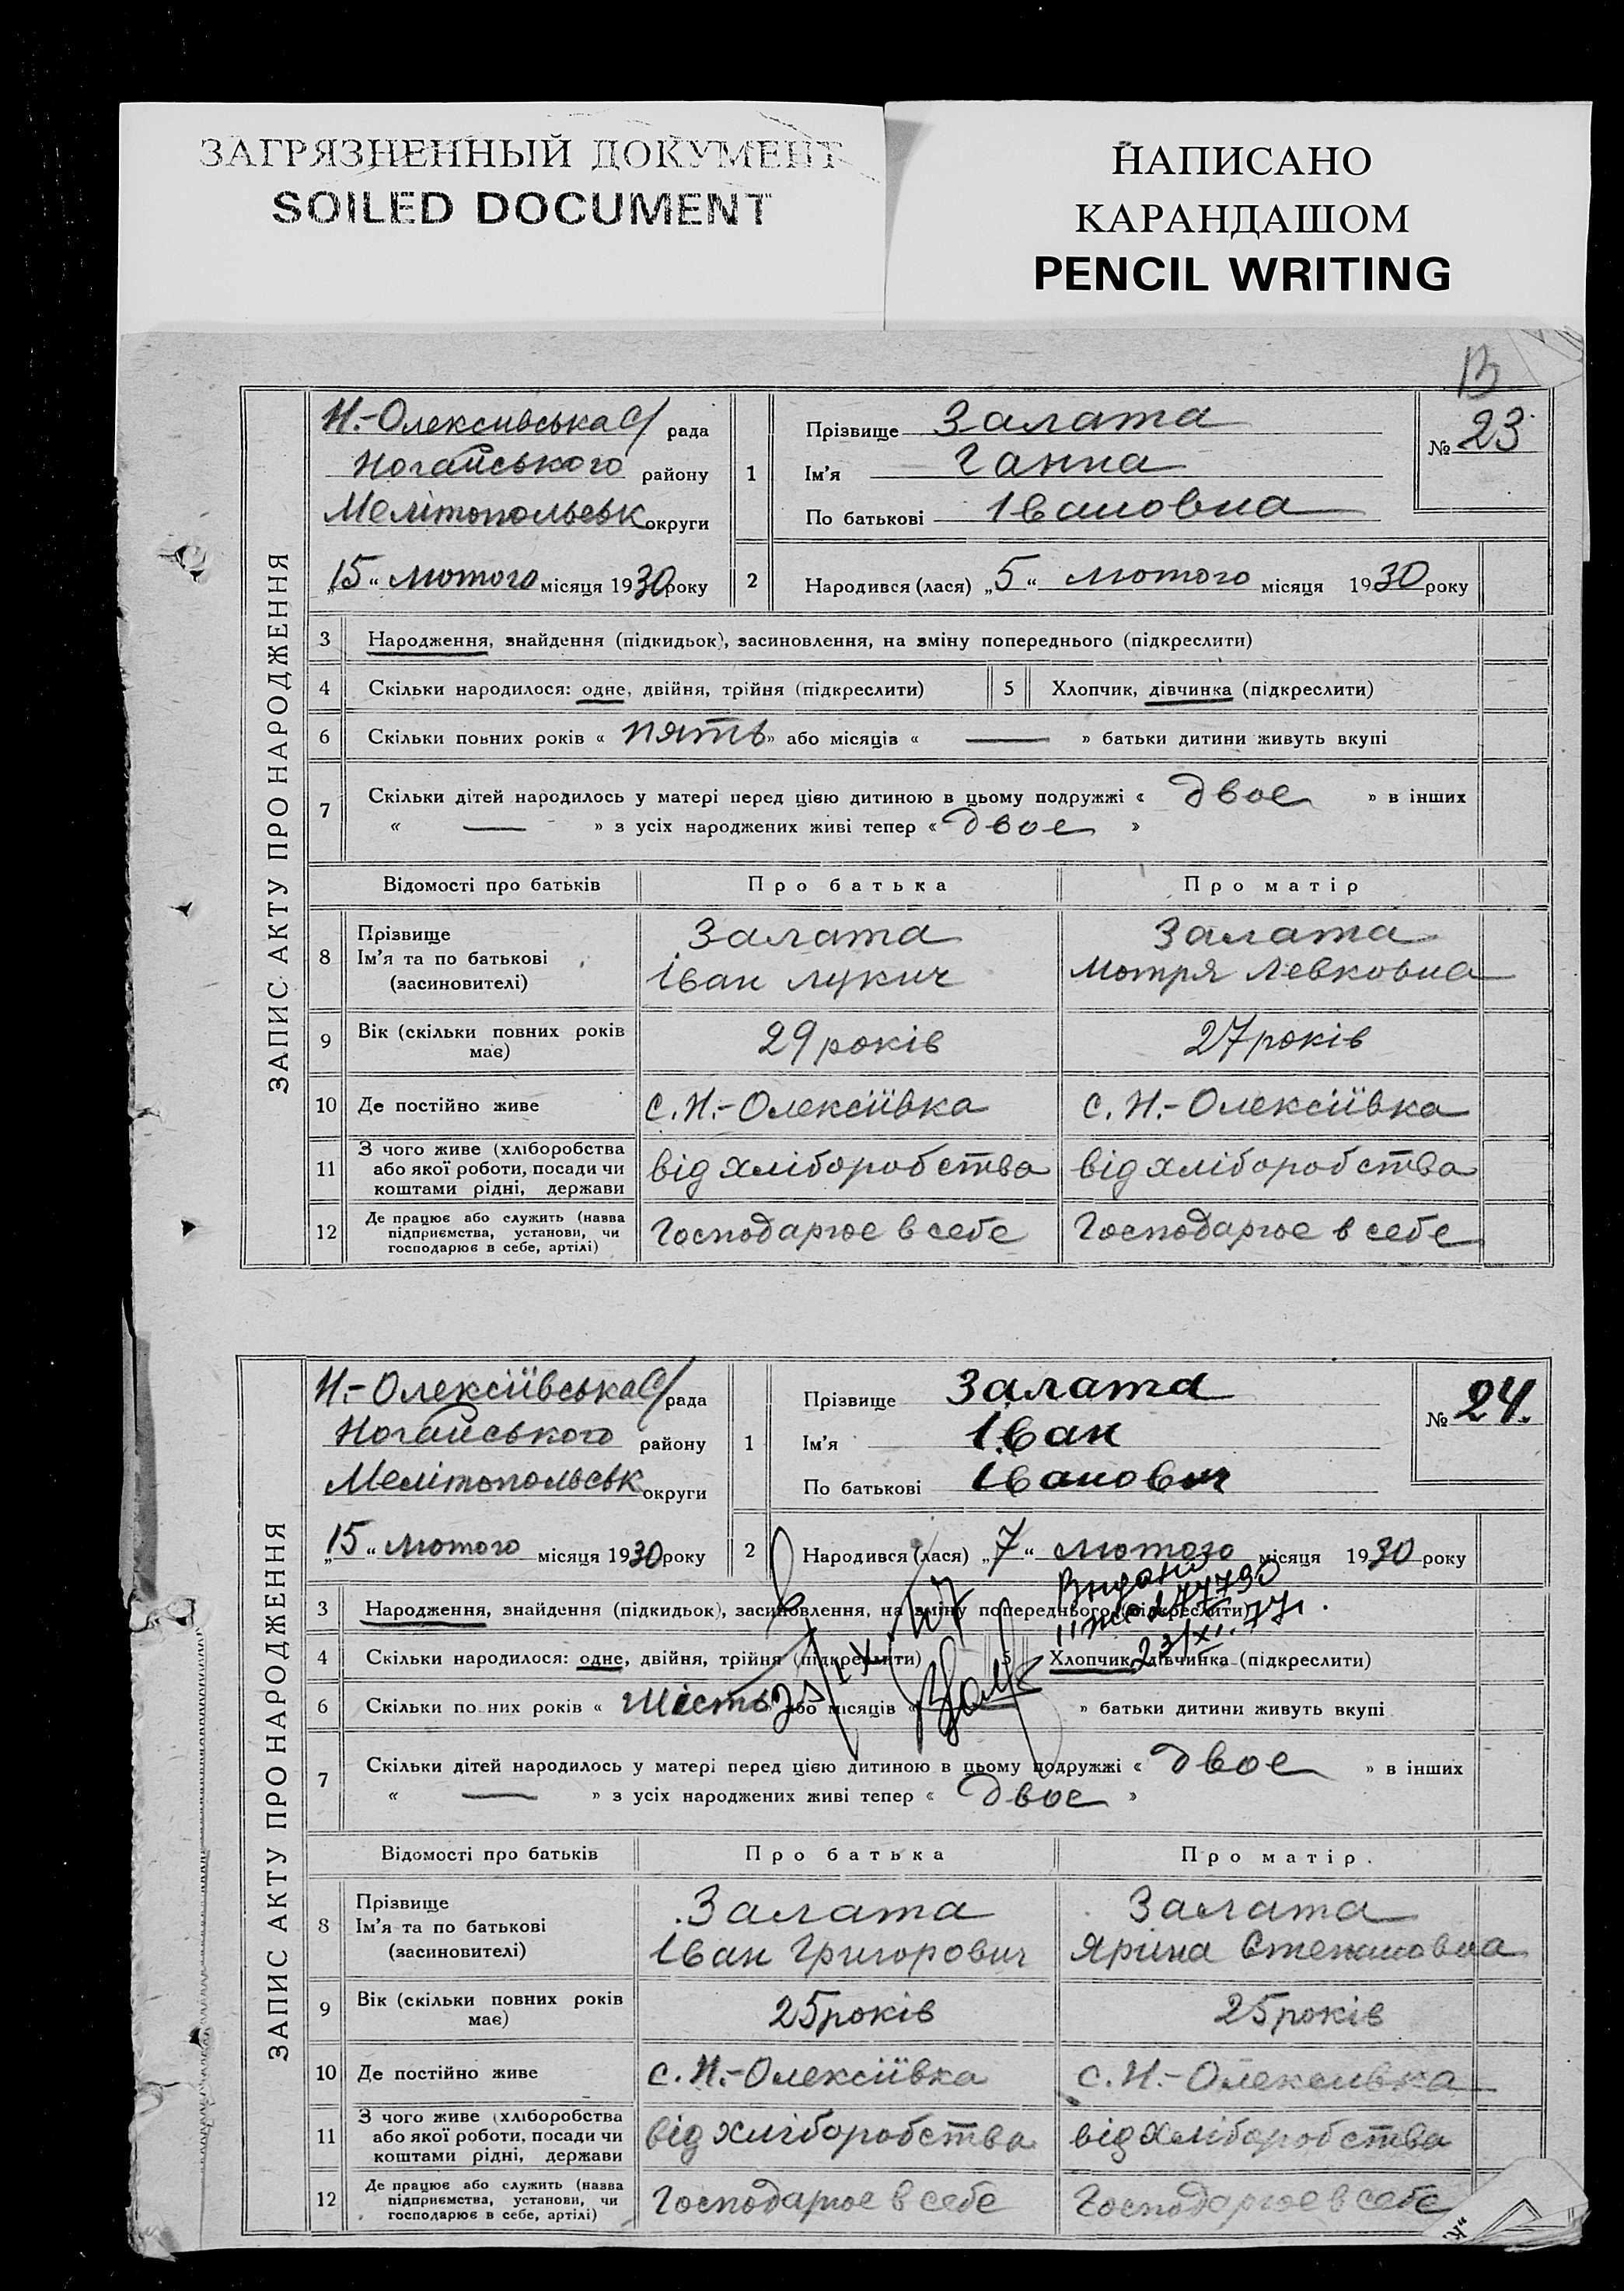 ЗАГРЯЗНЕННЫЙ ДОКУМЕНТ
SOILED DOCUMENT
НАПИСАНО
КАРАНДАШОМ
PENCIL WRITING
В
ЗАПИС АКТУ ПРО НАРОДЖЕННЯ
Н.-Олексиівська С/ рада
Ногайського району
Мелітопольськ округи
„15“ лютого місяця 1930 року
1
Прізвище Залата
Ім'я Ганна
По батькові Івановна
№ 23
2 Народився (лася) „5“ лютого місяця 1930 року
3 Народження, знайдення (підкидьок), засиновлення, на зміну попереднього (підкреслити)
4 Скільки народилося: одне, двійня, трійня (підкреслити) 5 Хлопчик, дівчинка (підкреслити)
6 Скільки повних років « пять » або місяців « — » батьки дитини живуть вкупі
7 Скільки дітей народилось у матері перед цією дитиною в цьому подружжі « двоє » в інших
« — » з усіх народжених живі тепер « двоє »
Відомості про батьків Про батька Про матір
8 Прізвище Залата Залата
Ім'я та по батькові Іван Лукич Мотря Левковна
(засиновителі)
9 Вік (скільки повних років має) 29 років 27 років
10 Де постійно живе с. Н.-Олексіївка с. Н.-Олексіївка
11 З чого живе (хліборобства
або якої роботи, посади чи від хліборобства від хліборобства
коштами рідні, держави
12 Де працює або служить (назва
підприємства, установи, чи Господарює в себе Господарює в себе
господарює в себе, артілі)
ЗАПИС АКТУ ПРО НАРОДЖЕННЯ
Н.-Олексіївська С/ рада
Ногайського району
Мелітопольськ округи
„15“ лютого місяця 1930 року
1
Прізвище Залата
Ім'я Іван
По батькові Іванович
№ 24.
2 Народився (лася) „7“ лютого місяця 1930 року
Видано
23/XI.77г.
3 Народження, знайдення (підкидьок), засиновлення, на зміну попереднього (підкреслити)
4 Скільки народилося: одне, двійня, трійня (підкреслити) 5 Хлопчик, дівчинка (підкреслити)
6 Скільки повних років « шість » або місяців « » батьки дитини живуть вкупі
7 Скільки дітей народилось у матері перед цією дитиною в цьому подружжі « двоє » в інших
« — » з усіх народжених живі тепер « двоє »
Відомості про батьків Про батька Про матір
8 Прізвище Залата Залата
Ім'я та по батькові Іван Григорович Ярина Степановна
(засиновителі)
9 Вік (скільки повних років має) 25 років 25 років
10 Де постійно живе с. Н.-Олексіївка с. Н.-Олексіївка
11 З чого живе (хліборобства
або якої роботи, посади чи від хліборобства від хліборобства
коштами рідні, держави
12 Де працює або служить (назва
підприємства, установи, чи Господарює в себе Господарює в себе
господарює в себе, артілі)